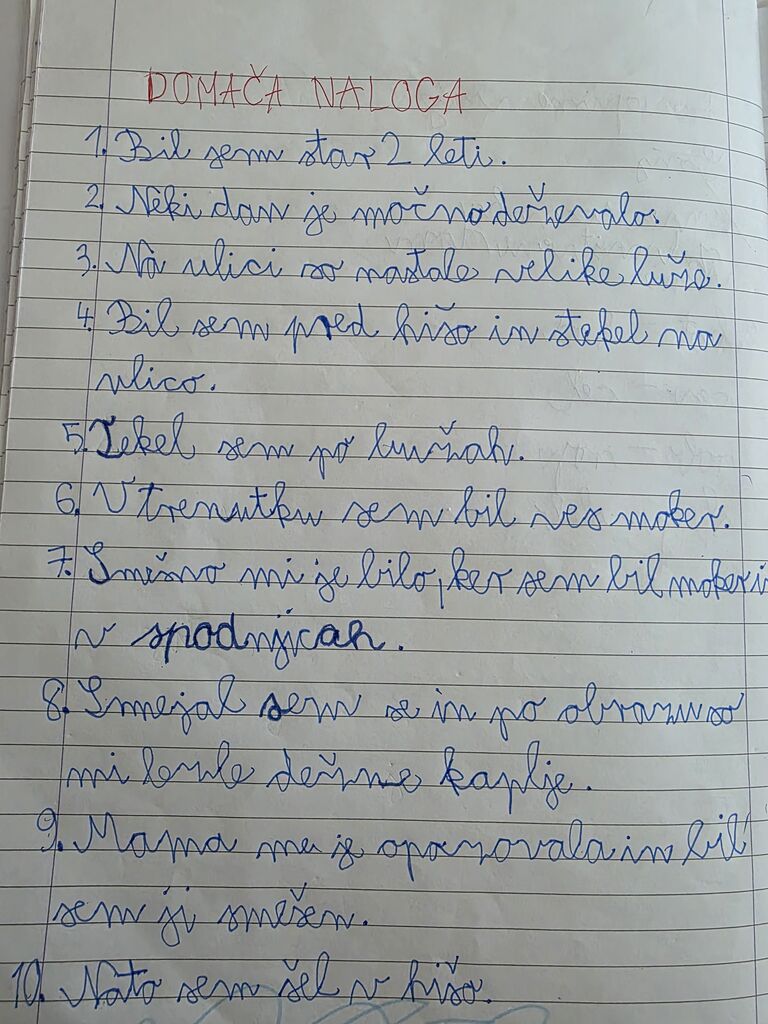 DOMAČA NALOGA
1. Bil sem star 2 leti.
2. Neki dan je močno deževalo.
3. Na ulici so nastale velike luže.
4. Bil sem pred hišo in stekel na
ulico.
5. Tekel sem po lužah.
6. V trenutku sem bil ves moker.
7. Smešno mi je bilo, ker sem bil moker i
v spodnjicah.
8. Smejal sem se in po obrazu so
mi lezle dežne kaplje.
9. Mama me je opazovala in bil
sem ji smešen.
10. Nato sem šel v hišo.